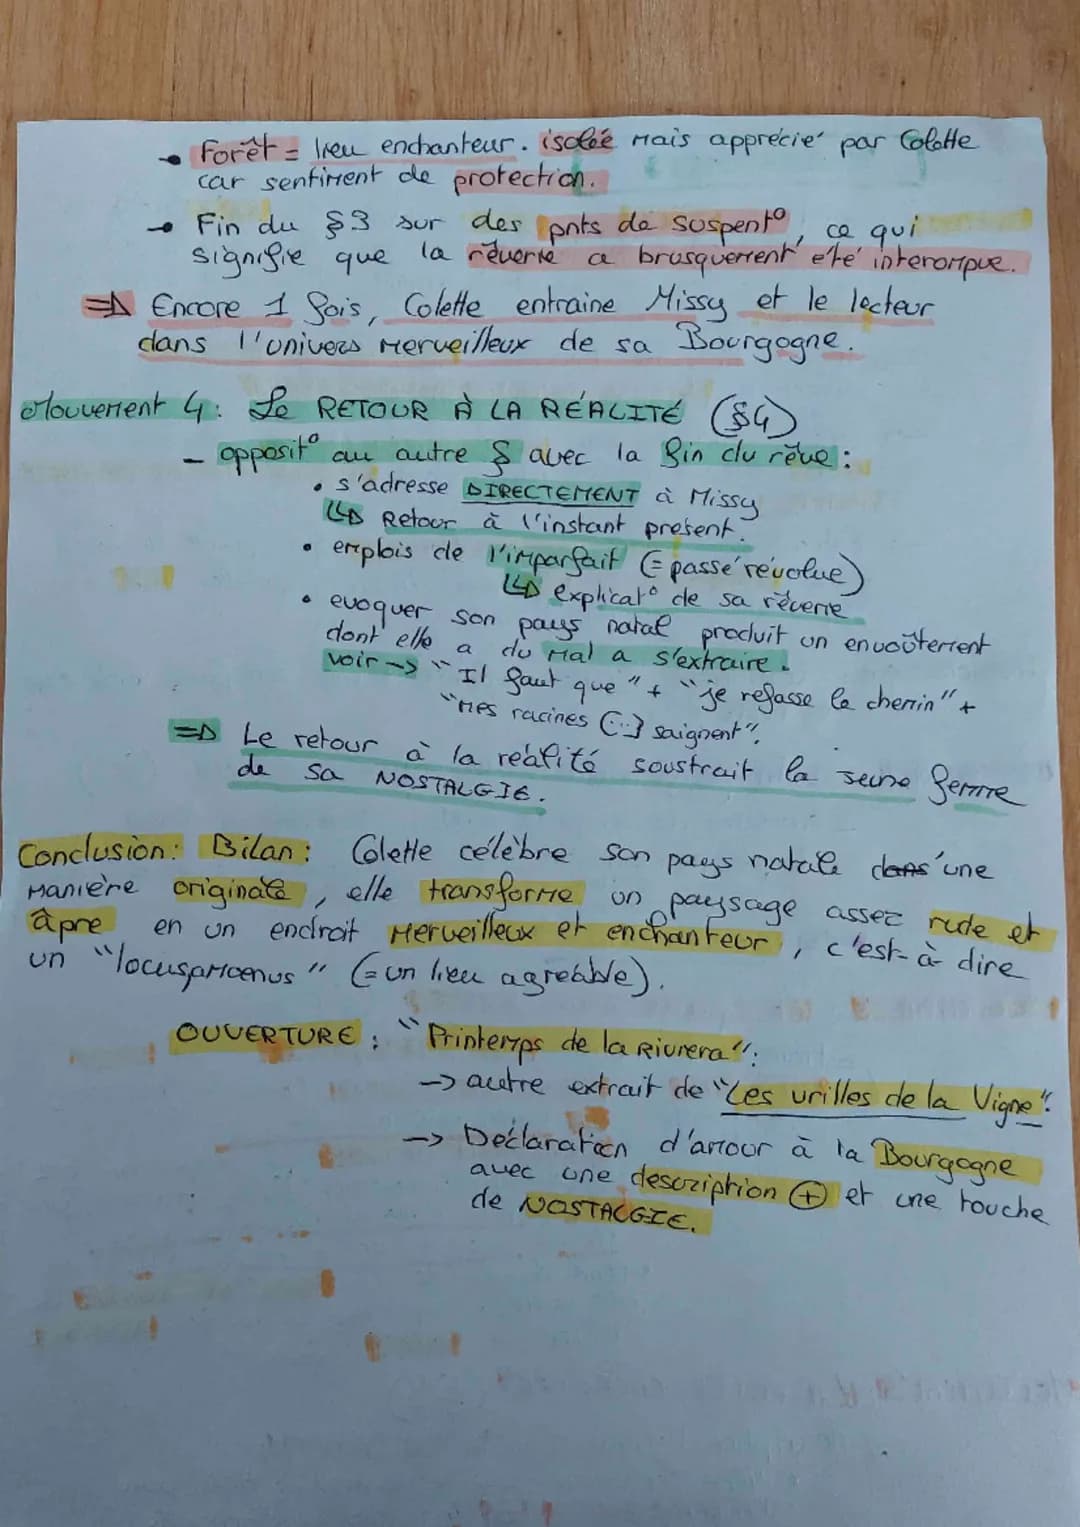 • Forêt = lieu enchanteur. isolée mais apprécié par Colette
car sentiment de protection.
• Fin du §3 sur des pnts de suspent°, ce qui
signifie que la rêverie a brusquement été interompue.
=> Encore 1 fois, Colette entraine Missy et le lecteur
dans l'univers merveilleux de sa Bourgogne.
Mouvement 4: Le RETOUR À LA RÉALITÉ (§4)
- opposit° au autre § avec la fin du rêve :
• s'adresse DIRECTEMENT à Missy
↳ Retour à l'instant present.
• emplois de l'imparfait (= passé révolue)
↳ explicat° de sa rêverie
• evoquer son pays natal produit un envoûtement
dont elle a du mal a s'extraire.
voir -> "Il faut que" + "je refasse le chemin" +
"mes racines (...) saignent".
=> Le retour à la réalité soustrait la jeune femme
de sa NOSTALGIE.
Conclusion: Bilan: Colette célèbre son pays natale d'une
manière originale, elle transforme un paysage assez rude et
âpre en un endroit merveilleux et enchanteur, c'est-à-dire
un "locusamoenus" (= un lieu agréable).
OUVERTURE : "Printemps de la Riviera":
-> autre extrait de "Les vrilles de la Vigne".
-> Déclaration d'amour à la Bourgogne
avec une description ⊕ et une touche
de NOSTALGIE.